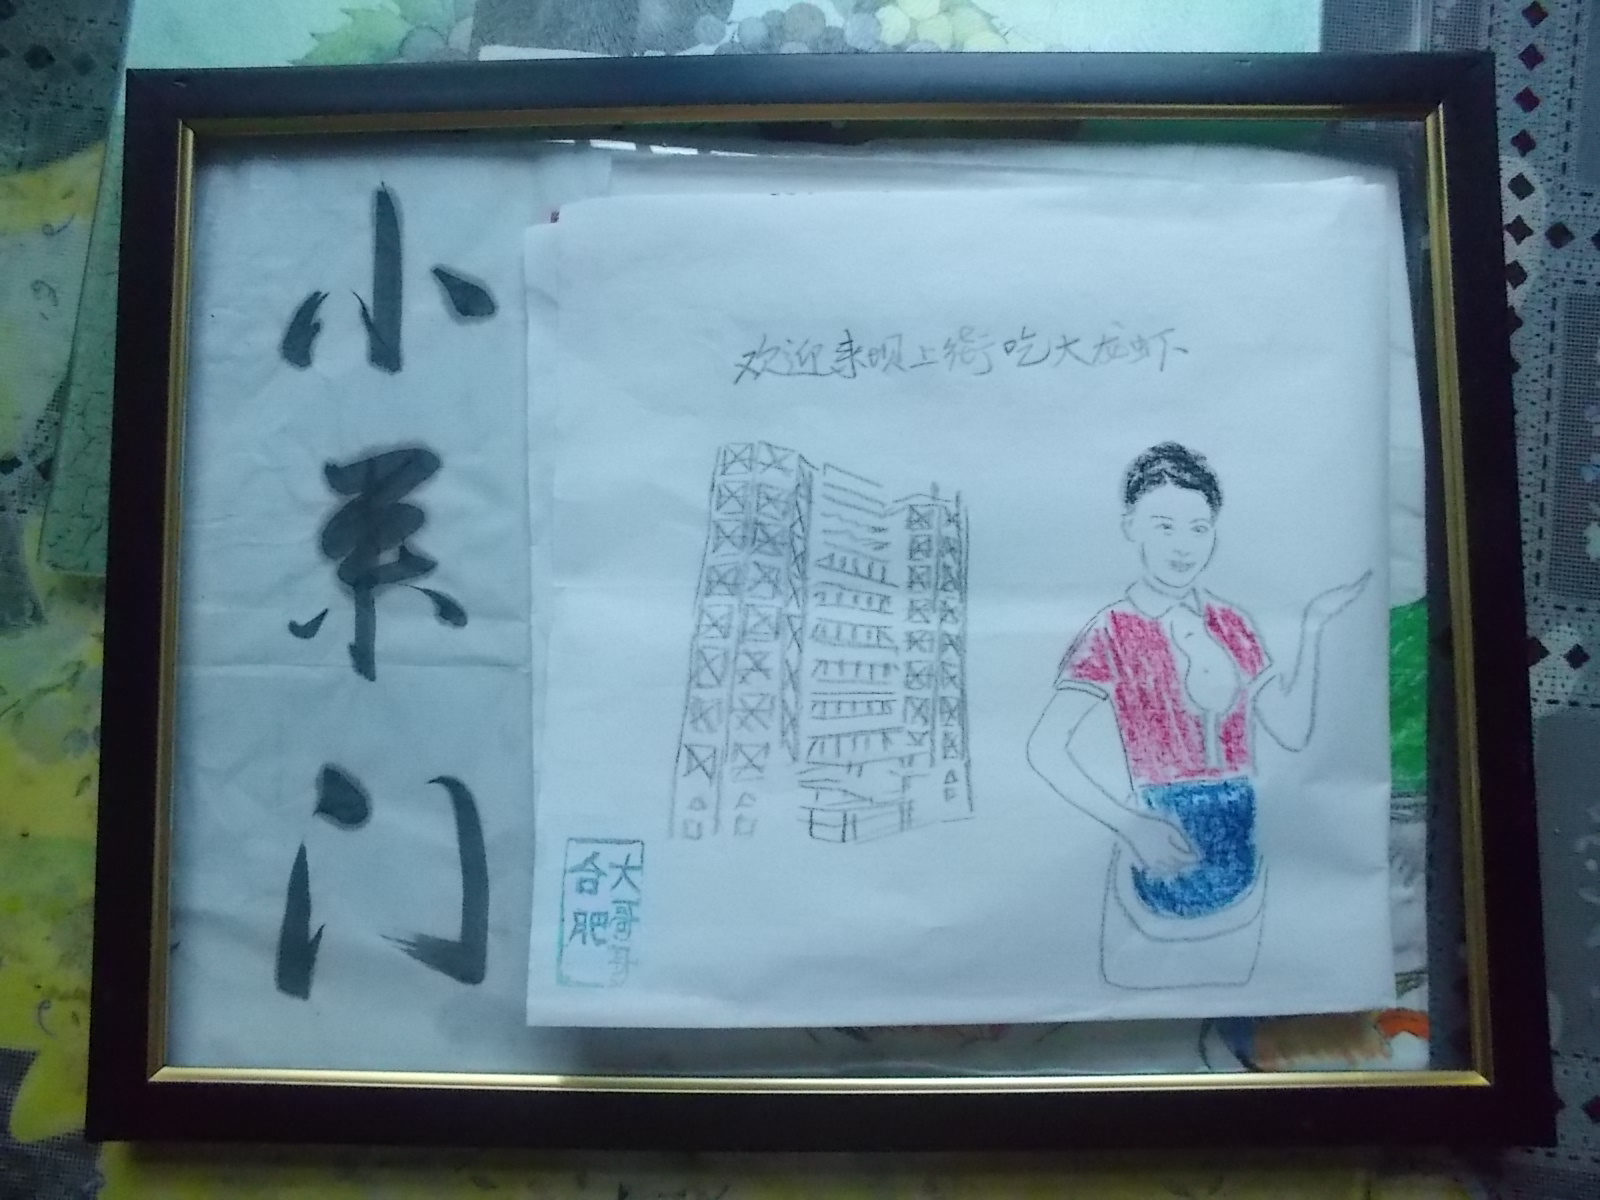 小東门
欢迎来坝上街吃大龙虾
大哥哥
合肥